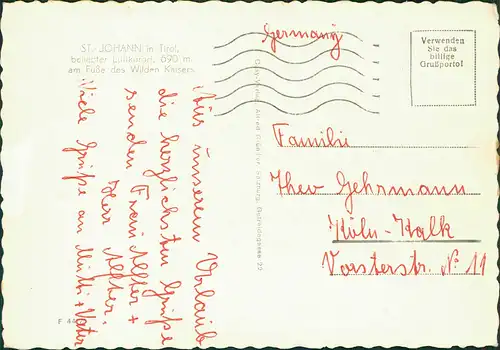 ST. JOHANN in Tirol,
beliebter Luftkurort, 690 m,
am Fuße des Wilden Kaisers
Germany
Verwenden
Sie das
billige
Grußporto!
Aus unserem Urlaub
die herzlichsten Grüße
senden Frau Alfter +
Herr Alfter.
Viele Grüße an Mutti + Vater
Salzburg, Getreidegasse 22
Familie
Theo Gehrmann
Köln-Kalk
Vorsterstr. No 11
F 44